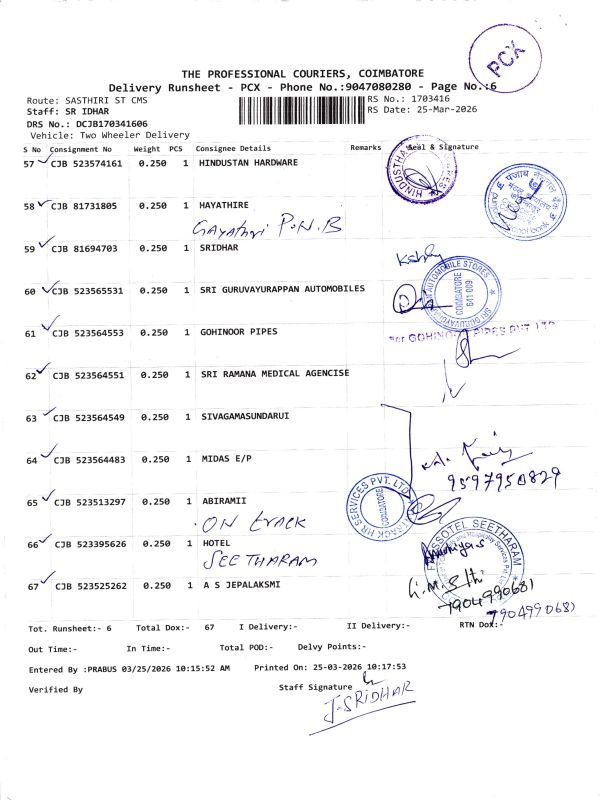 PCX
THE PROFESSIONAL COURIERS, COIMBATORE
Delivery Runsheet - PCX - Phone No.:9047080280 - Page No.:6
Route: SASTHIRI ST CMS
RS No.: 1703416
Staff: SR IDHAR
RS Date: 25-Mar-2026
DRS No.: DCJB170341606
Vehicle: Two Wheeler Delivery
S No Consignment No Weight PCS Consignee Details Remarks Seal & Signature
57 CJB 523574161 0.250 1 HINDUSTAN HARDWARE
58 CJB 81731805 0.250 1 HAYATHIRE
Gayathri P.N.B
59 CJB 81694703 0.250 1 SRIDHAR
60 CJB 523565531 0.250 1 SRI GURUVAYURAPPAN AUTOMOBILES
SRI GURUVAYURAPPAN AUTOMOBILE STORES
COIMBATORE
641 009
61 CJB 523564553 0.250 1 GOHINOOR PIPES
For GOHINOOR PIPES PVT LTD
62 CJB 523564551 0.250 1 SRI RAMANA MEDICAL AGENCISE
63 CJB 523564549 0.250 1 SIVAGAMASUNDARUI
64 CJB 523564483 0.250 1 MIDAS E/P
9597950829
65 CJB 523513297 0.250 1 ABIRAMII
ON trACK
TRACK HR SERVICES PVT. LTD
66 CJB 523395626 0.250 1 HOTEL
SEETHARAM
SSOTEL SEETHARAM
67 CJB 523525262 0.250 1 A S JEPALAKSMI
7904990681
7904990681
Tot. Runsheet:- 6 Total Dox:- 67 I Delivery:- II Delivery:- RTN Dox:-
Out Time:- In Time:- Total POD:- Delvy Points:-
Entered By :PRABUS 03/25/2026 10:15:52 AM Printed On: 25-03-2026 10:17:53
Verified By Staff Signature
J-SRIDHAR